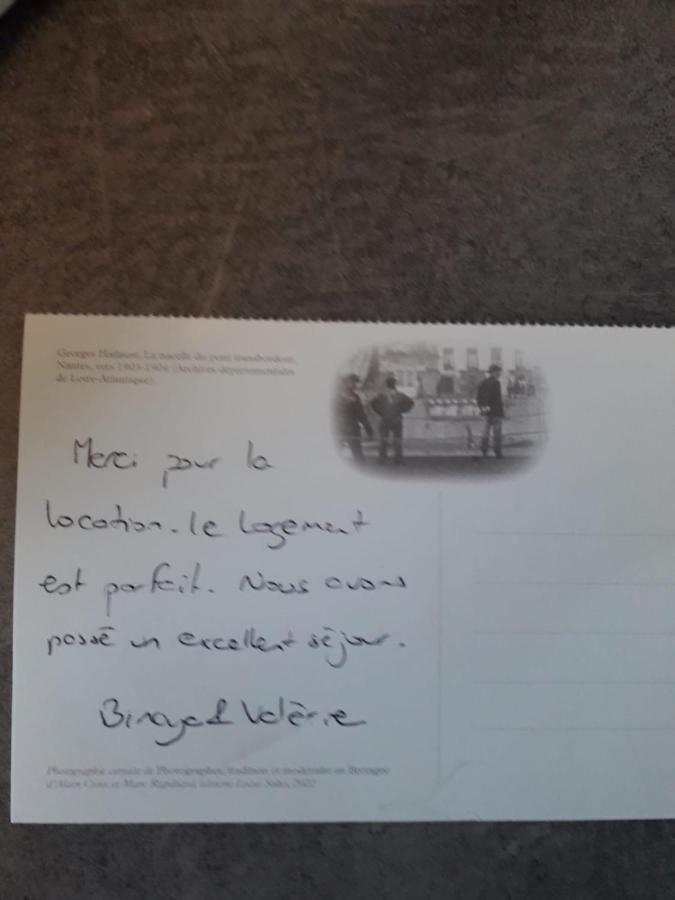 Georges Hailaust, La nacelle du pont transbordeur,
Nantes, vers 1903-1904 (Archives départementales
de Loire-Atlantique).
Merci pour la
location. le logement
est parfait. Nous avons
passé un excellent séjour.
Valérie
Photographie extraite de Photographes, tradition et modernité en Bretagne
d'Alain Croix et Marc Rapilliard, éditions 2022